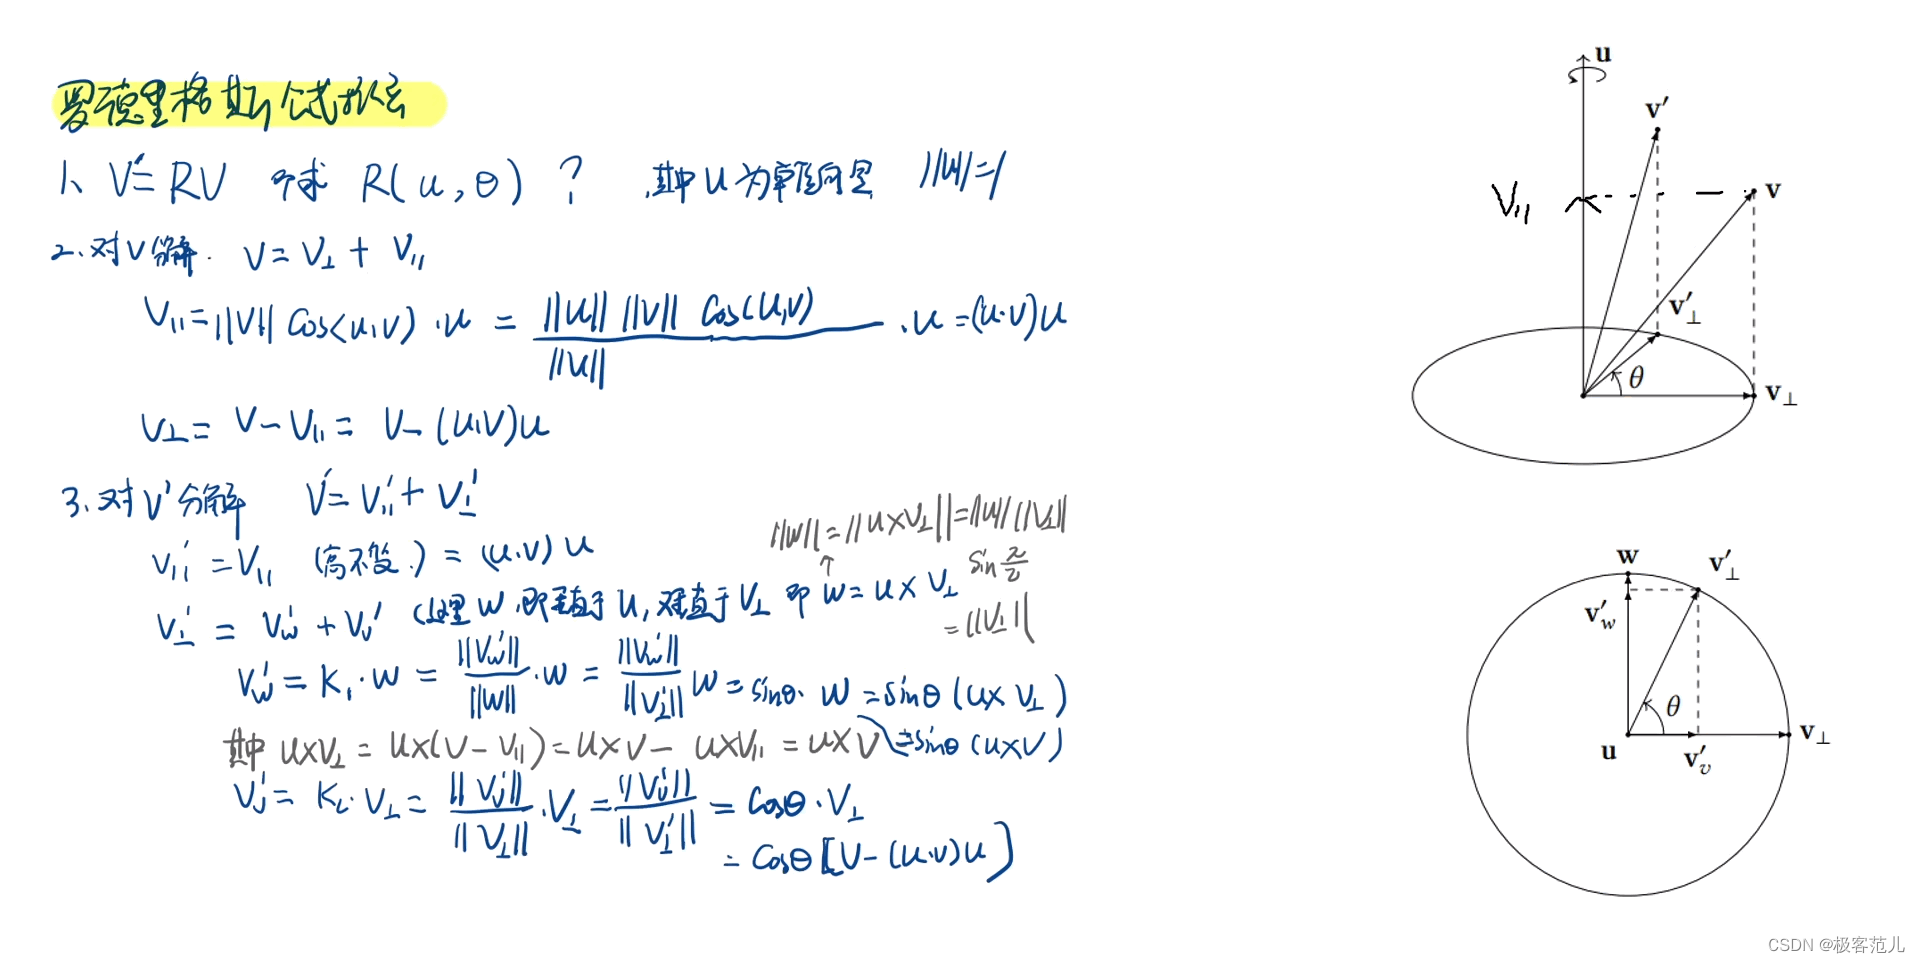 罗德里格斯公式推导
1、V'=RV 即求 R(u,θ)? 其中u为单位向量 ||u||=1
2.对V分解. V=V⊥+V||
V||=||V||Cos<u,v>·u = ||u|| ||v|| Cos(u,v) / ||u|| ·u =(u·v)u
V⊥= V-V|| = V-(u·v)u
3.对V'分解 V'=V||'+V⊥'
||w||=||u×V⊥||=||u|| ||V⊥||
sin π/2
=||V⊥||
V||'=V|| (高不变.) = (u·v) u
V⊥' = Vw'+Vv' (这里w,即垂直于u,又垂直于V⊥ 即 w=u×V⊥
Vw'=K₁·w = ||Vw'|| / ||w|| ·w = ||Vw'|| / ||V⊥'|| w =sinθ·w =sinθ(u×V⊥)
其中 u×V⊥ = u×(V-V||)=u×V- u×V|| =u×V =sinθ(u×V)
Vv'= K₂·V⊥= ||Vv'|| / ||V⊥|| ·V⊥ = ||Vv'|| / ||V⊥'|| = Cosθ·V⊥
= Cosθ[V-(u·v)u]
u
v'
V||
v
v'⊥
θ
v⊥
w
v'⊥
v'w
θ
u
v'v
v⊥
CSDN @极客范儿